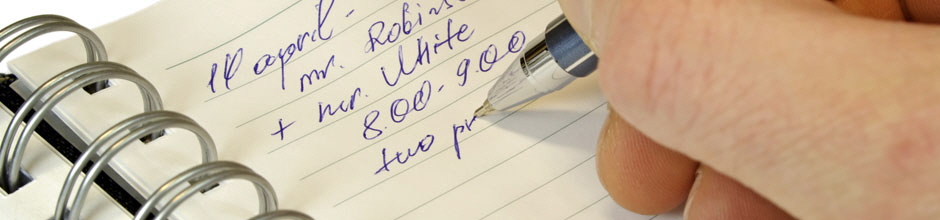 14 april -
mr. Robins
+ mr. White
8.00 - 9.00
two pr